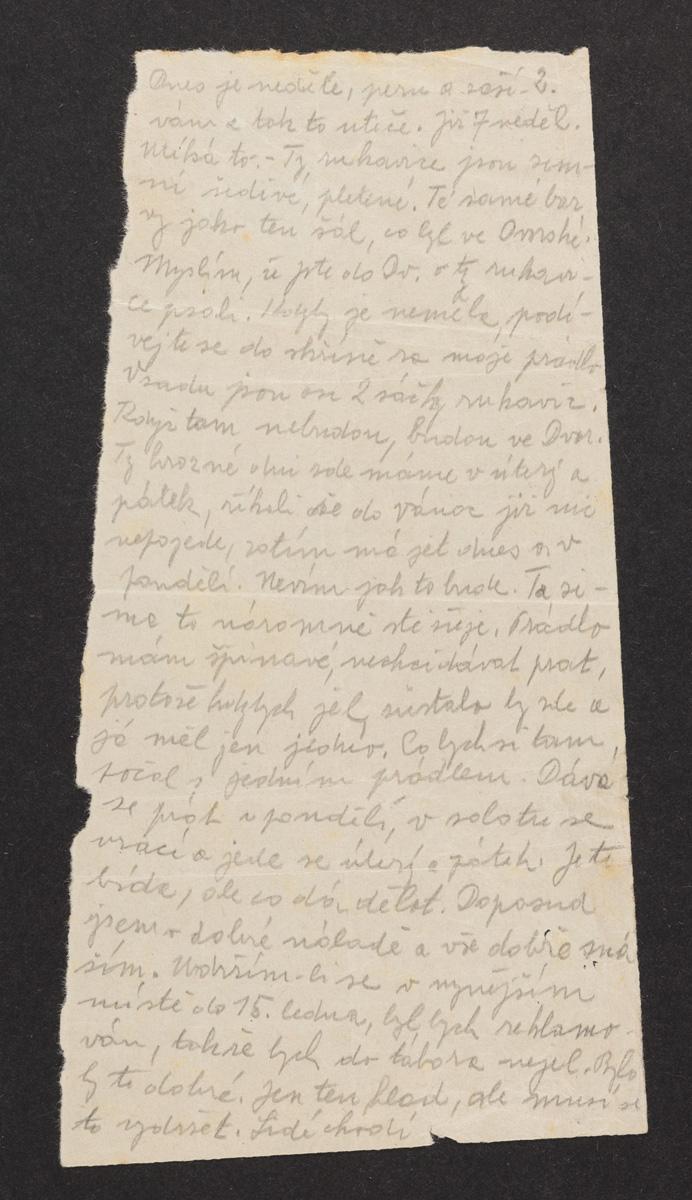 Dnes je neděle, peru a saší 2.
vám a tak to uteče. Již 7 neděl.
Utíká to. - Ty rukavice jsou zim-
ní šedivé, pletené. Té samé bar
vy jako ten šál, co byl ve Dvorské.
Myslím, že jste do Dv. o ty rukavi-
ce psali. Kdyby je neměla, podí-
vejte se do skříně za moje prádlo
Vzadu jsou asi 2 sáčky rukavic.
Když tam nebudou, budou ve Dvor.
Ty hrozné dni zde máme v úterý a
pátek, říkali že do vánoc již nic
nepojede, zatím má jet dnes a v
pondělí. Nevím jak to bude. Ta zi-
ma to náramně stěžuje. Prádlo
mám špinavé, nechci dávat prát,
protože kdybych jel, zůstalo by zde a
já měl jen jedno. Co bych si tam,
počal s jedním prádlem. Dává
se prát v pondělí, v sobotu se
vrací a jede se úterý a pátek. Je to
bída, ale co dá dělat. Doposud
jsem v dobré náladě a vše dobře sná
ším. Udržím-li se v nynějším
místě do 15. ledna, byl bych reklamo-
ván, takže bych do tábora nejel. Bylo
by to dobré. Jen ten hlad, ale musí se
to vydržet. Lidé chodí